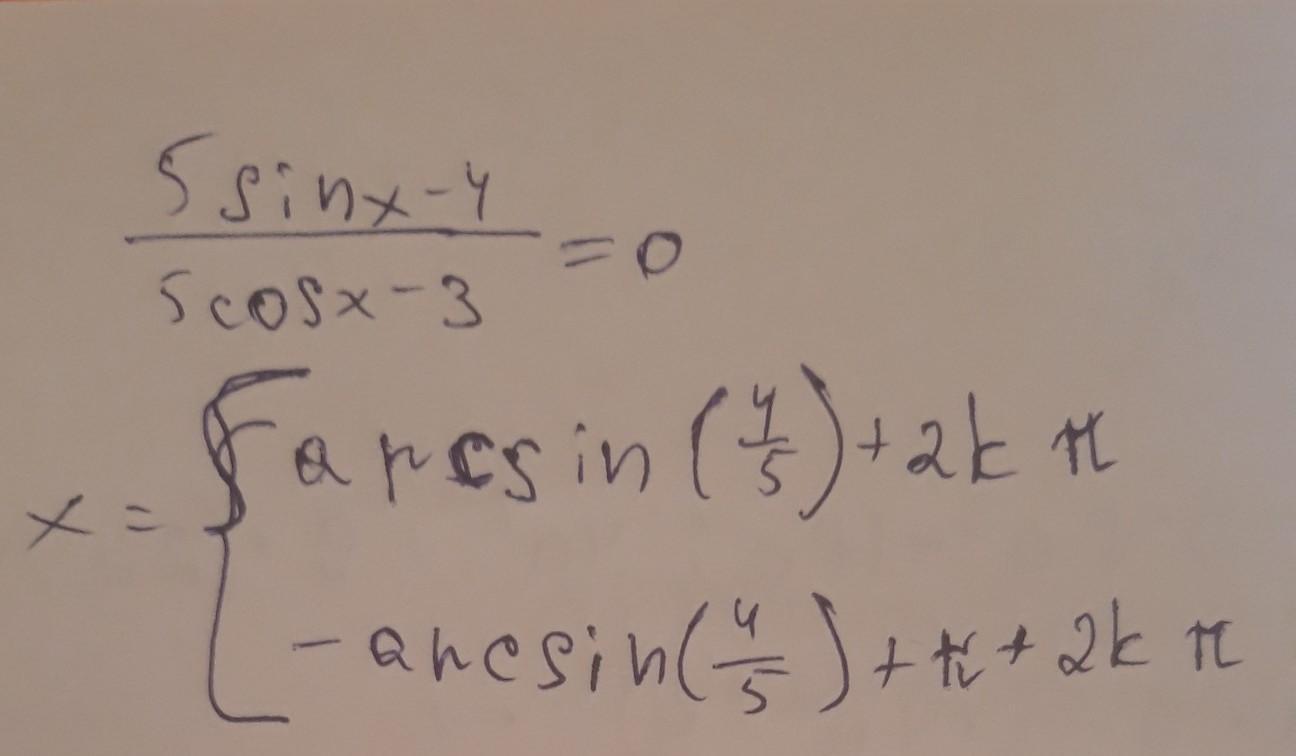 5 sinx-4
5cosx-3 =0
x = { arcsin (4/5) +2k π
-arcsin(4/5) + π + 2k π